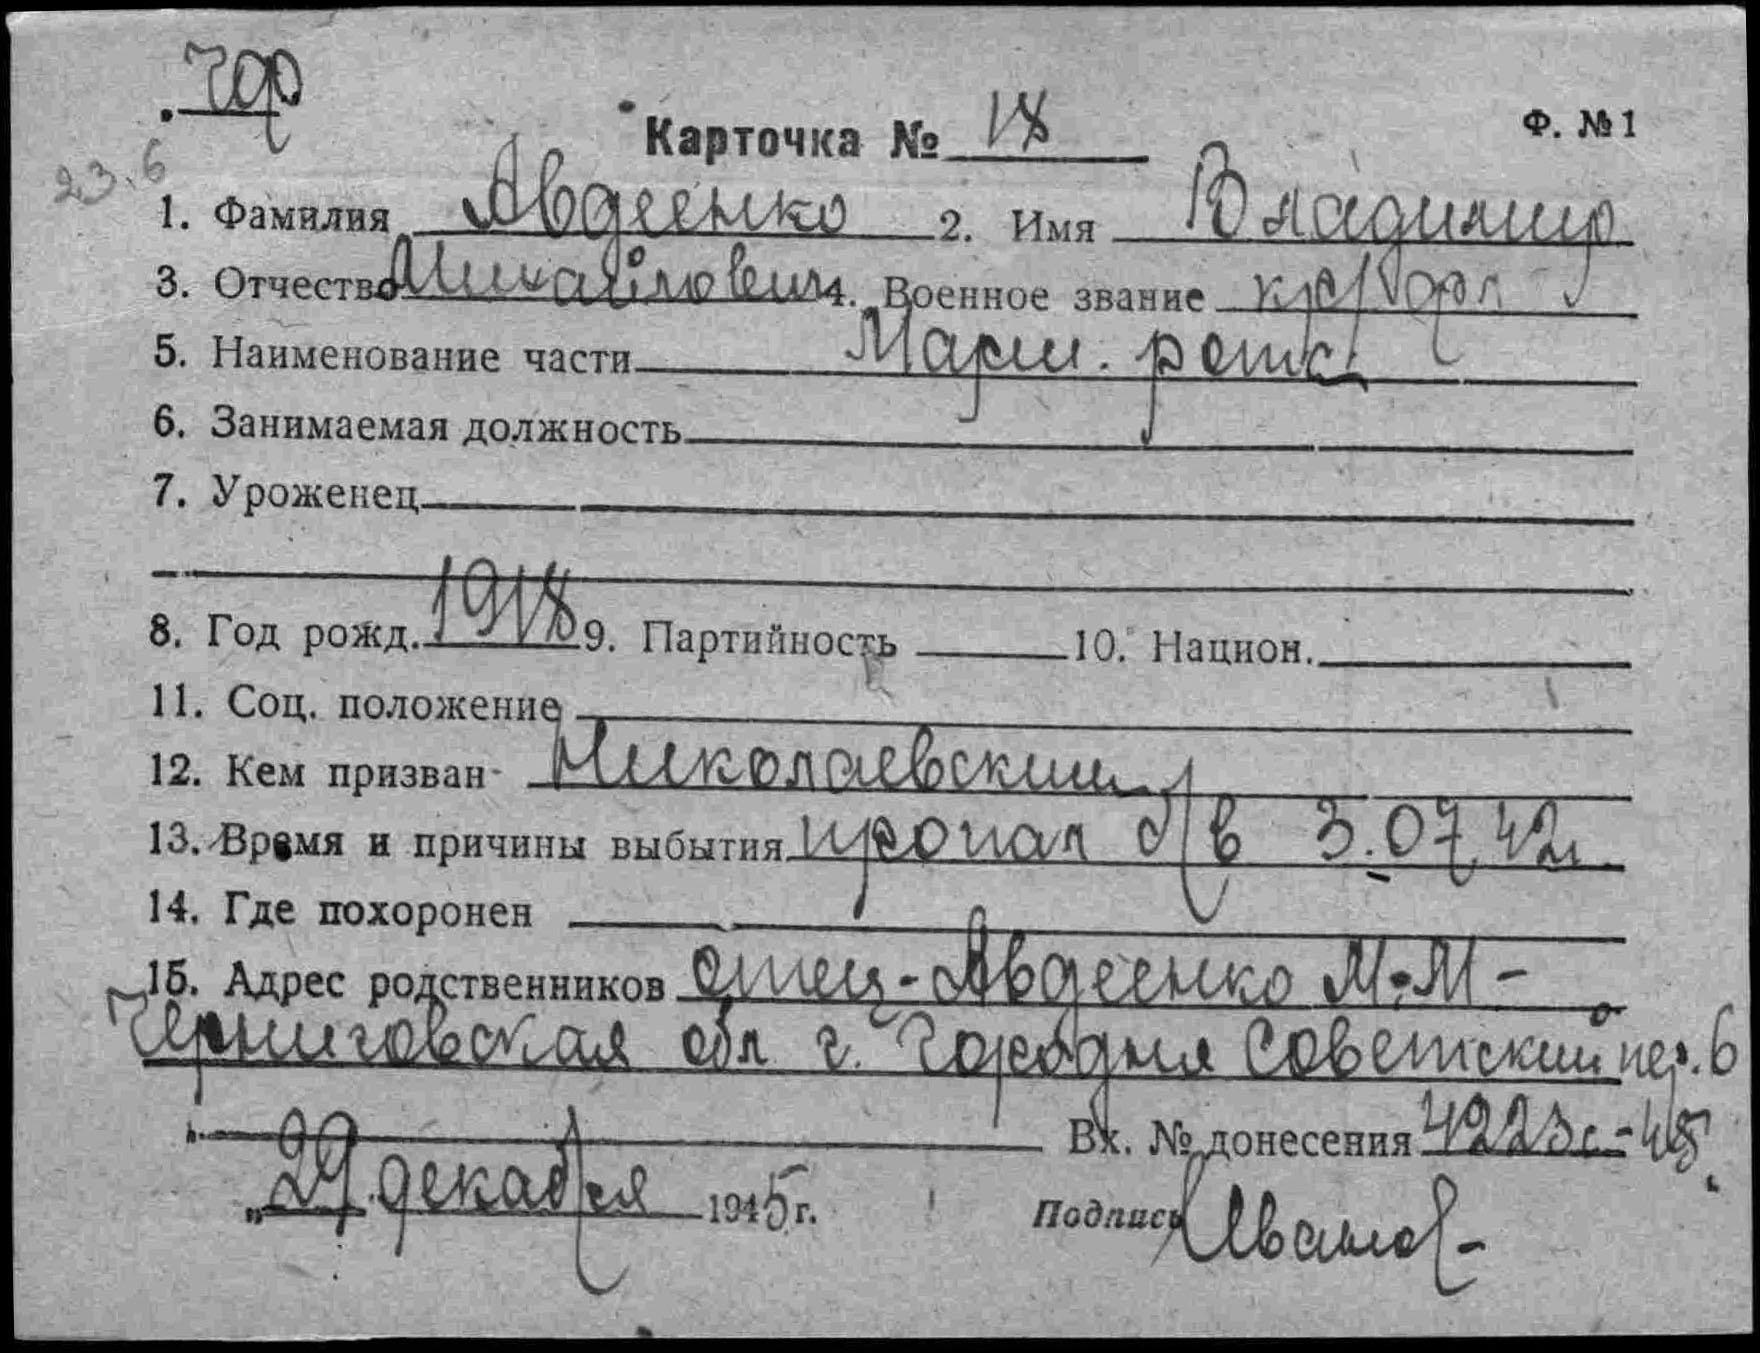 ЧФ
Карточка № 18
Ф. № 1
23.6
1. Фамилия Авдеенко 2. Имя Владимир
3. Отчество Михайлович 4. Военное звание кр-ф
5. Наименование части Марш. рота
6. Занимаемая должность
7. Уроженец
8. Год рожд. 1918 9. Партийность 10. Национ.
11. Соц. положение
12. Кем призван Николаевским
13. Время и причины выбытия пропал б/в 3.07.42г.
14. Где похоронен
15. Адрес родственников отец - Авдеенко М. М -
Черниговская обл г. Городня Советский пер. 6
Вх. № донесения 4223с - 45
„29" декабря 1945 г. Подпись Иванов